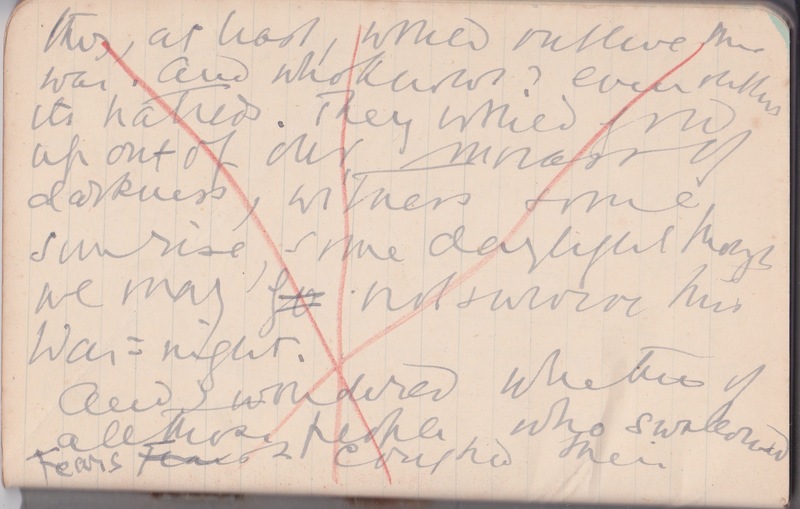 this, at least, would outlive this
war. And who knows? even outlive
its hatreds. They would grow
up out of our morass of
darkness, witness some
sunrise, some daylight though
we may not survive this
War-night.
And I wondered whether of
all those people who swallowed
tears & coughed their